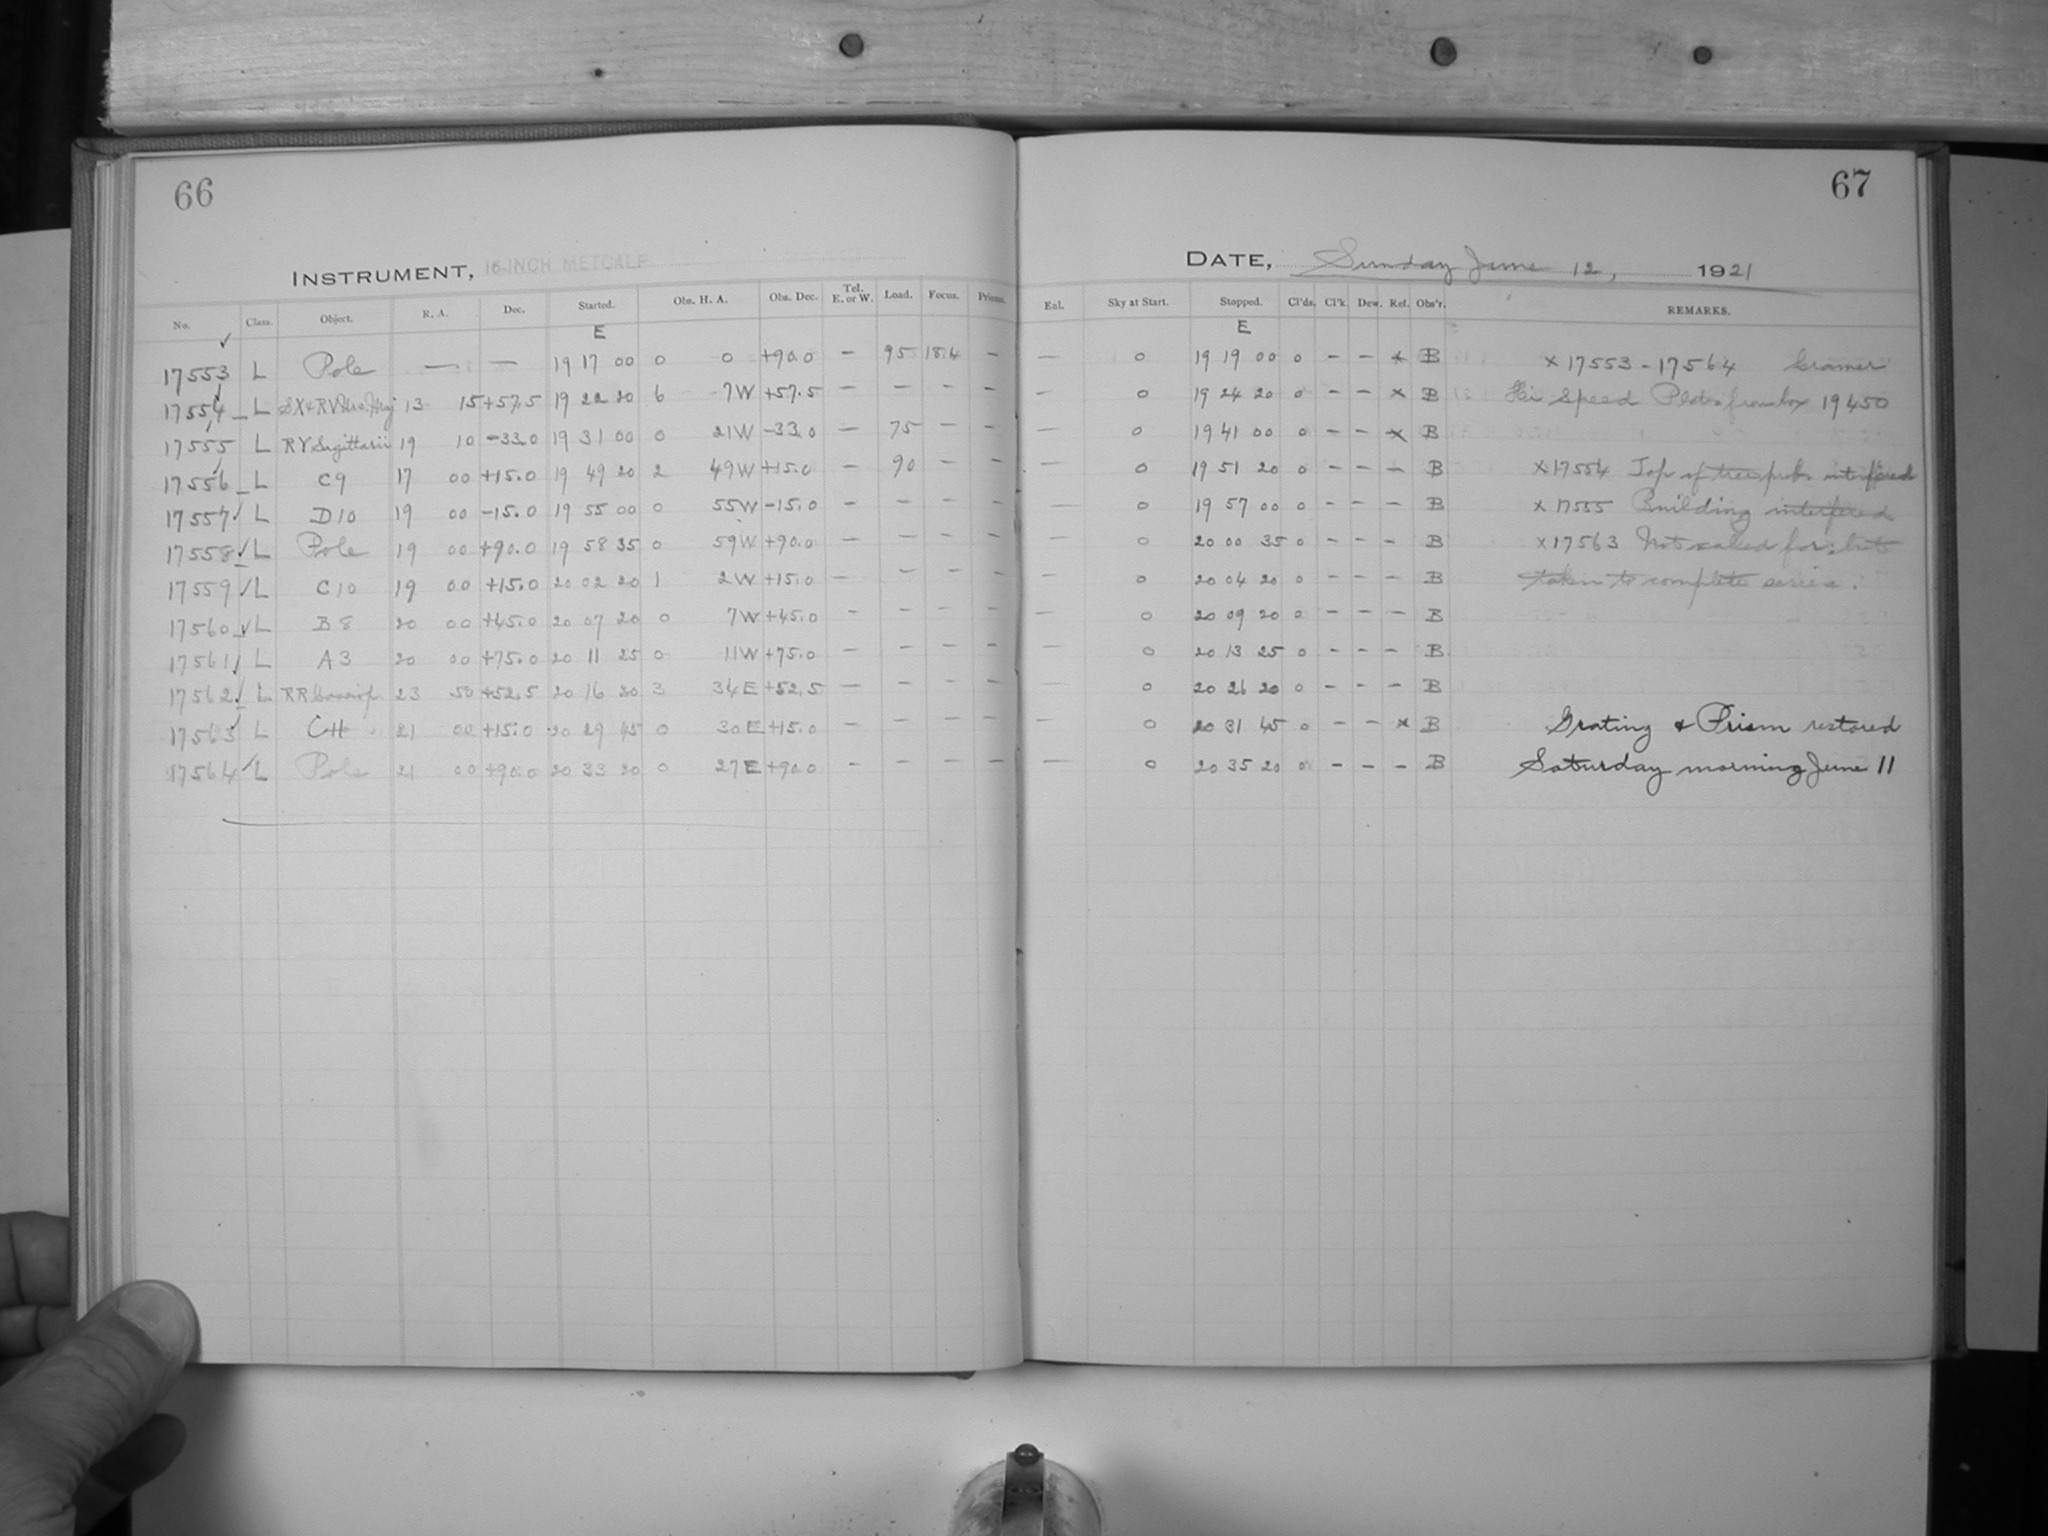 66
INSTRUMENT, 16-INCH METCALF
No. Class. Object. R. A. Dec. Started. Obs. H. A. Obs. Dec. Tel. E. or W. Load. Focus. Prisms.
E
17553 L Pole — — 19 17 00 0 0 +90.0 – 95 18.4 –
17554 L SX & RV 13 15 +57.5 19 22 20 6 7W +57.5 – – – –
17555 L RY Sagittarii 19 10 -33.0 19 31 00 0 21W -33.0 – 75 – –
17556 L C9 17 00 +15.0 19 49 20 2 49W +15.0 – 90 – –
17557 L D10 19 00 -15.0 19 55 00 0 55W -15.0 – – – –
17558 L Pole 19 00 +90.0 19 58 35 0 59W +90.0 – – – –
17559 L C10 19 00 +15.0 20 02 20 1 2W +15.0 – – – –
17560 L B8 20 00 +45.0 20 07 20 0 7W +45.0 – – – –
17561 L A3 20 00 +75.0 20 11 25 0 11W +75.0 – – – –
17562 L RR 23 50 +52.5 20 16 20 3 34E +52.5 – – – –
17563 L C11 21 00 +15.0 20 29 45 0 30E +15.0 – – – –
17564 L Pole 21 00 +90.0 20 33 20 0 27E +90.0 – – – –
67
DATE, Sunday June 12, 1921
Enl. Sky at Start. Stopped. Cl'ds. Cl'k. Dew. Ref. Obs'r. REMARKS.
E
— 0 19 19 00 0 – – x B x 17553 - 17564 Cramer
— 0 19 24 20 0 – – x B Hi Speed Plates from box 19450
— 0 19 41 00 0 – – x B
— 0 19 51 20 0 – – – B x 17554 Top of tree prob. interfered
— 0 19 57 00 0 – – – B x 17555 Building interfered
— 0 20 00 35 0 – – – B x 17563 Not called for: but
— 0 20 04 20 0 – – – B taken to complete series.
— 0 20 09 20 0 – – – B
— 0 20 13 25 0 – – – B
— 0 20 26 20 0 – – – B
— 0 20 31 45 0 – – x B Grating & Prism restored
— 0 20 35 20 0 – – – B Saturday morning June 11